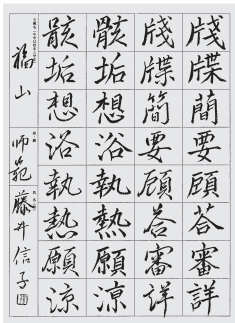 牋牒蕳要顧答審詳
牋牒簡要顧答審詳
骸垢想浴執熱願涼
骸垢想浴執熱願涼
福山 師範 藤井信子